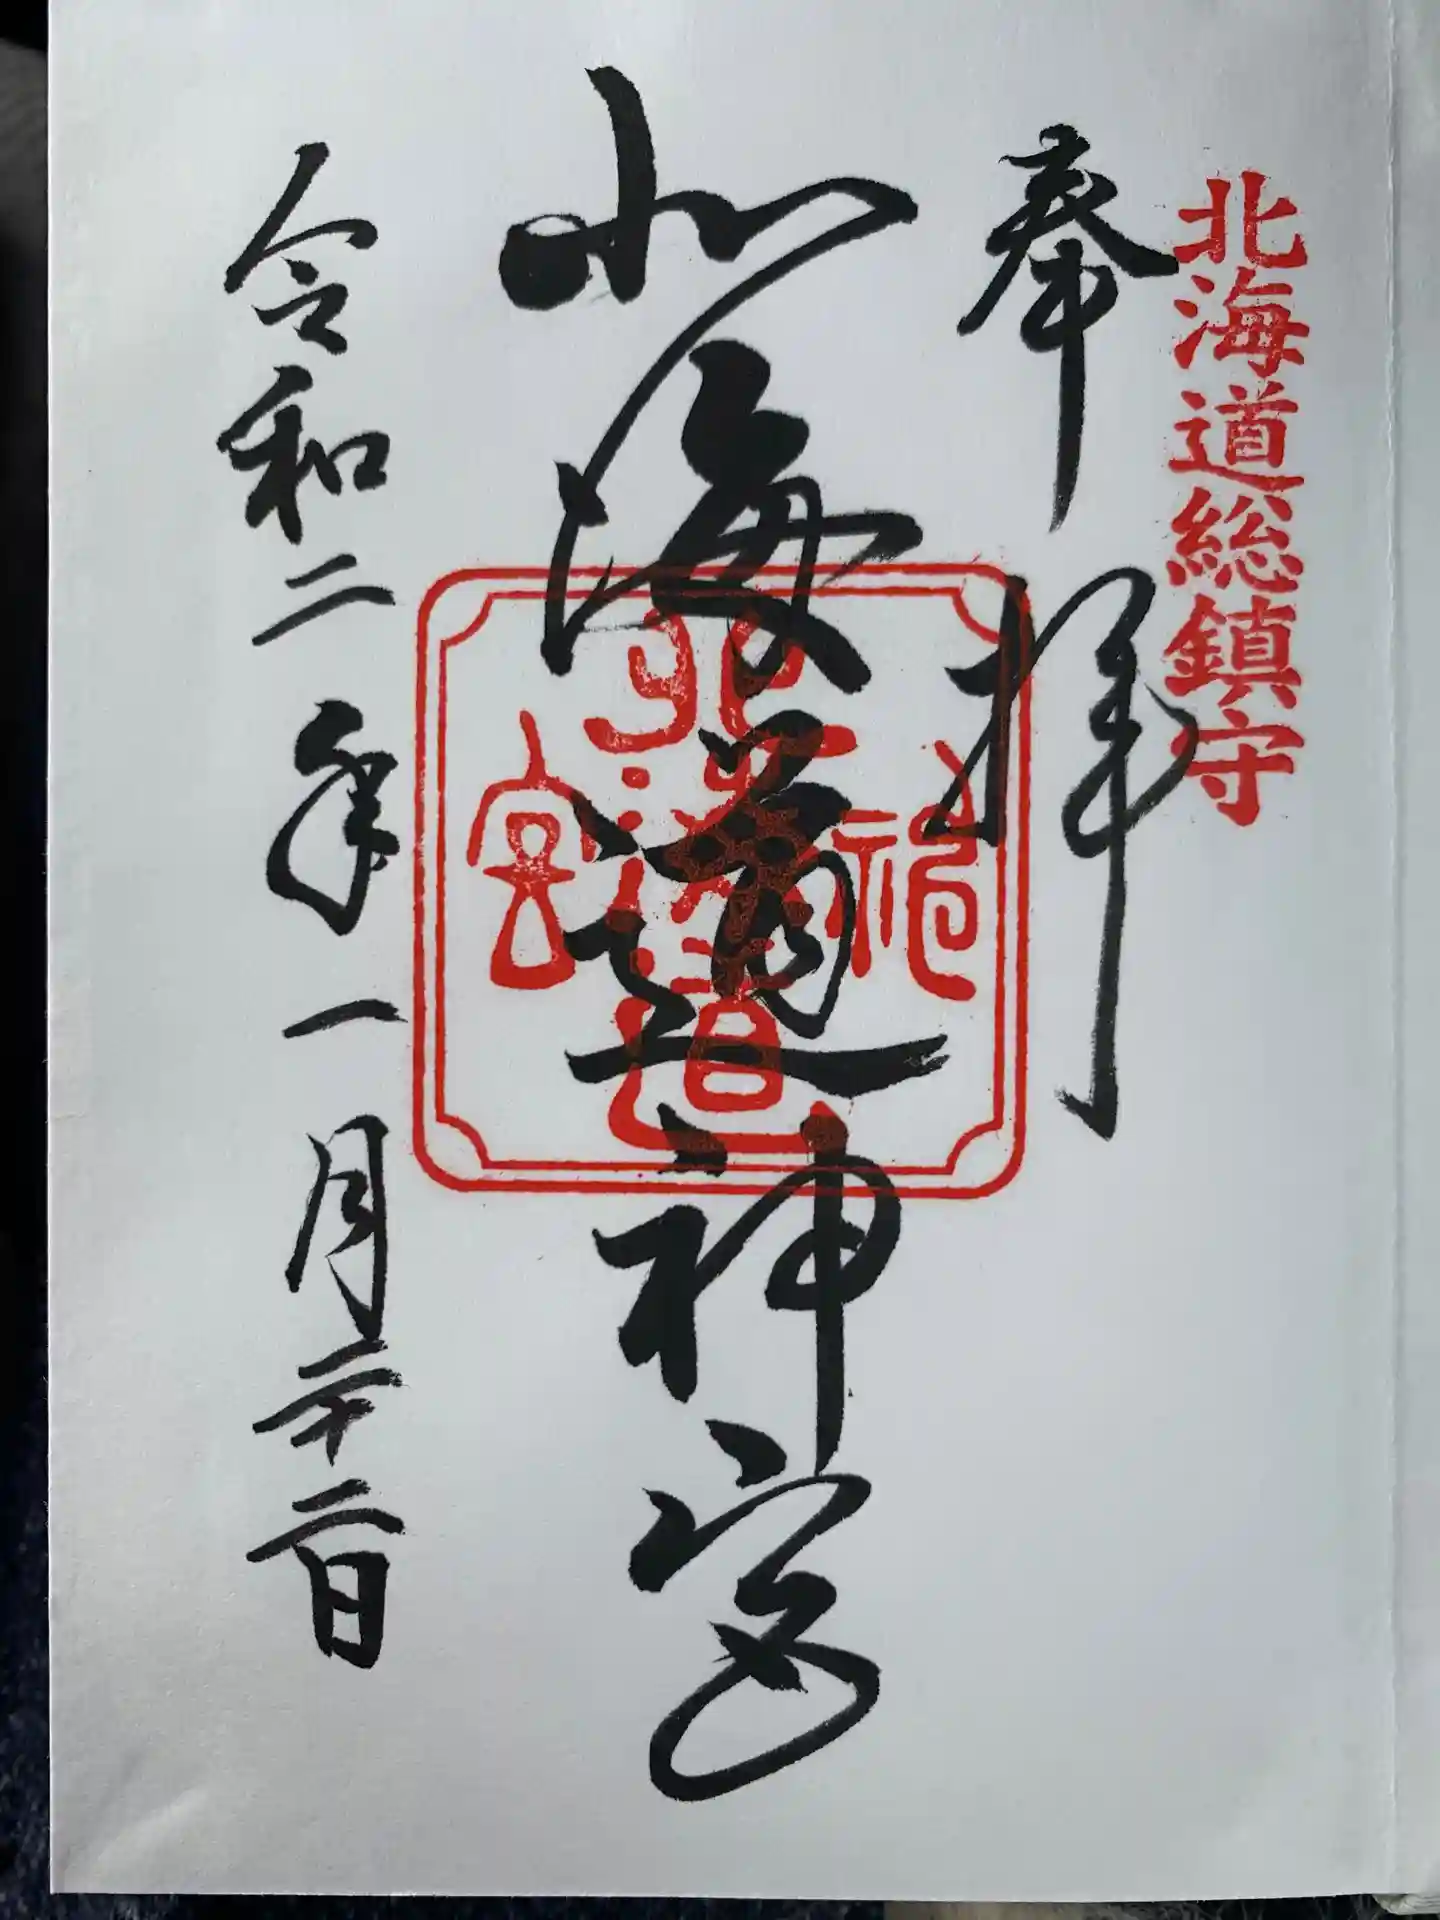 北海道総鎮守
奉拝
北海道神宮
令和二年一月二十二日